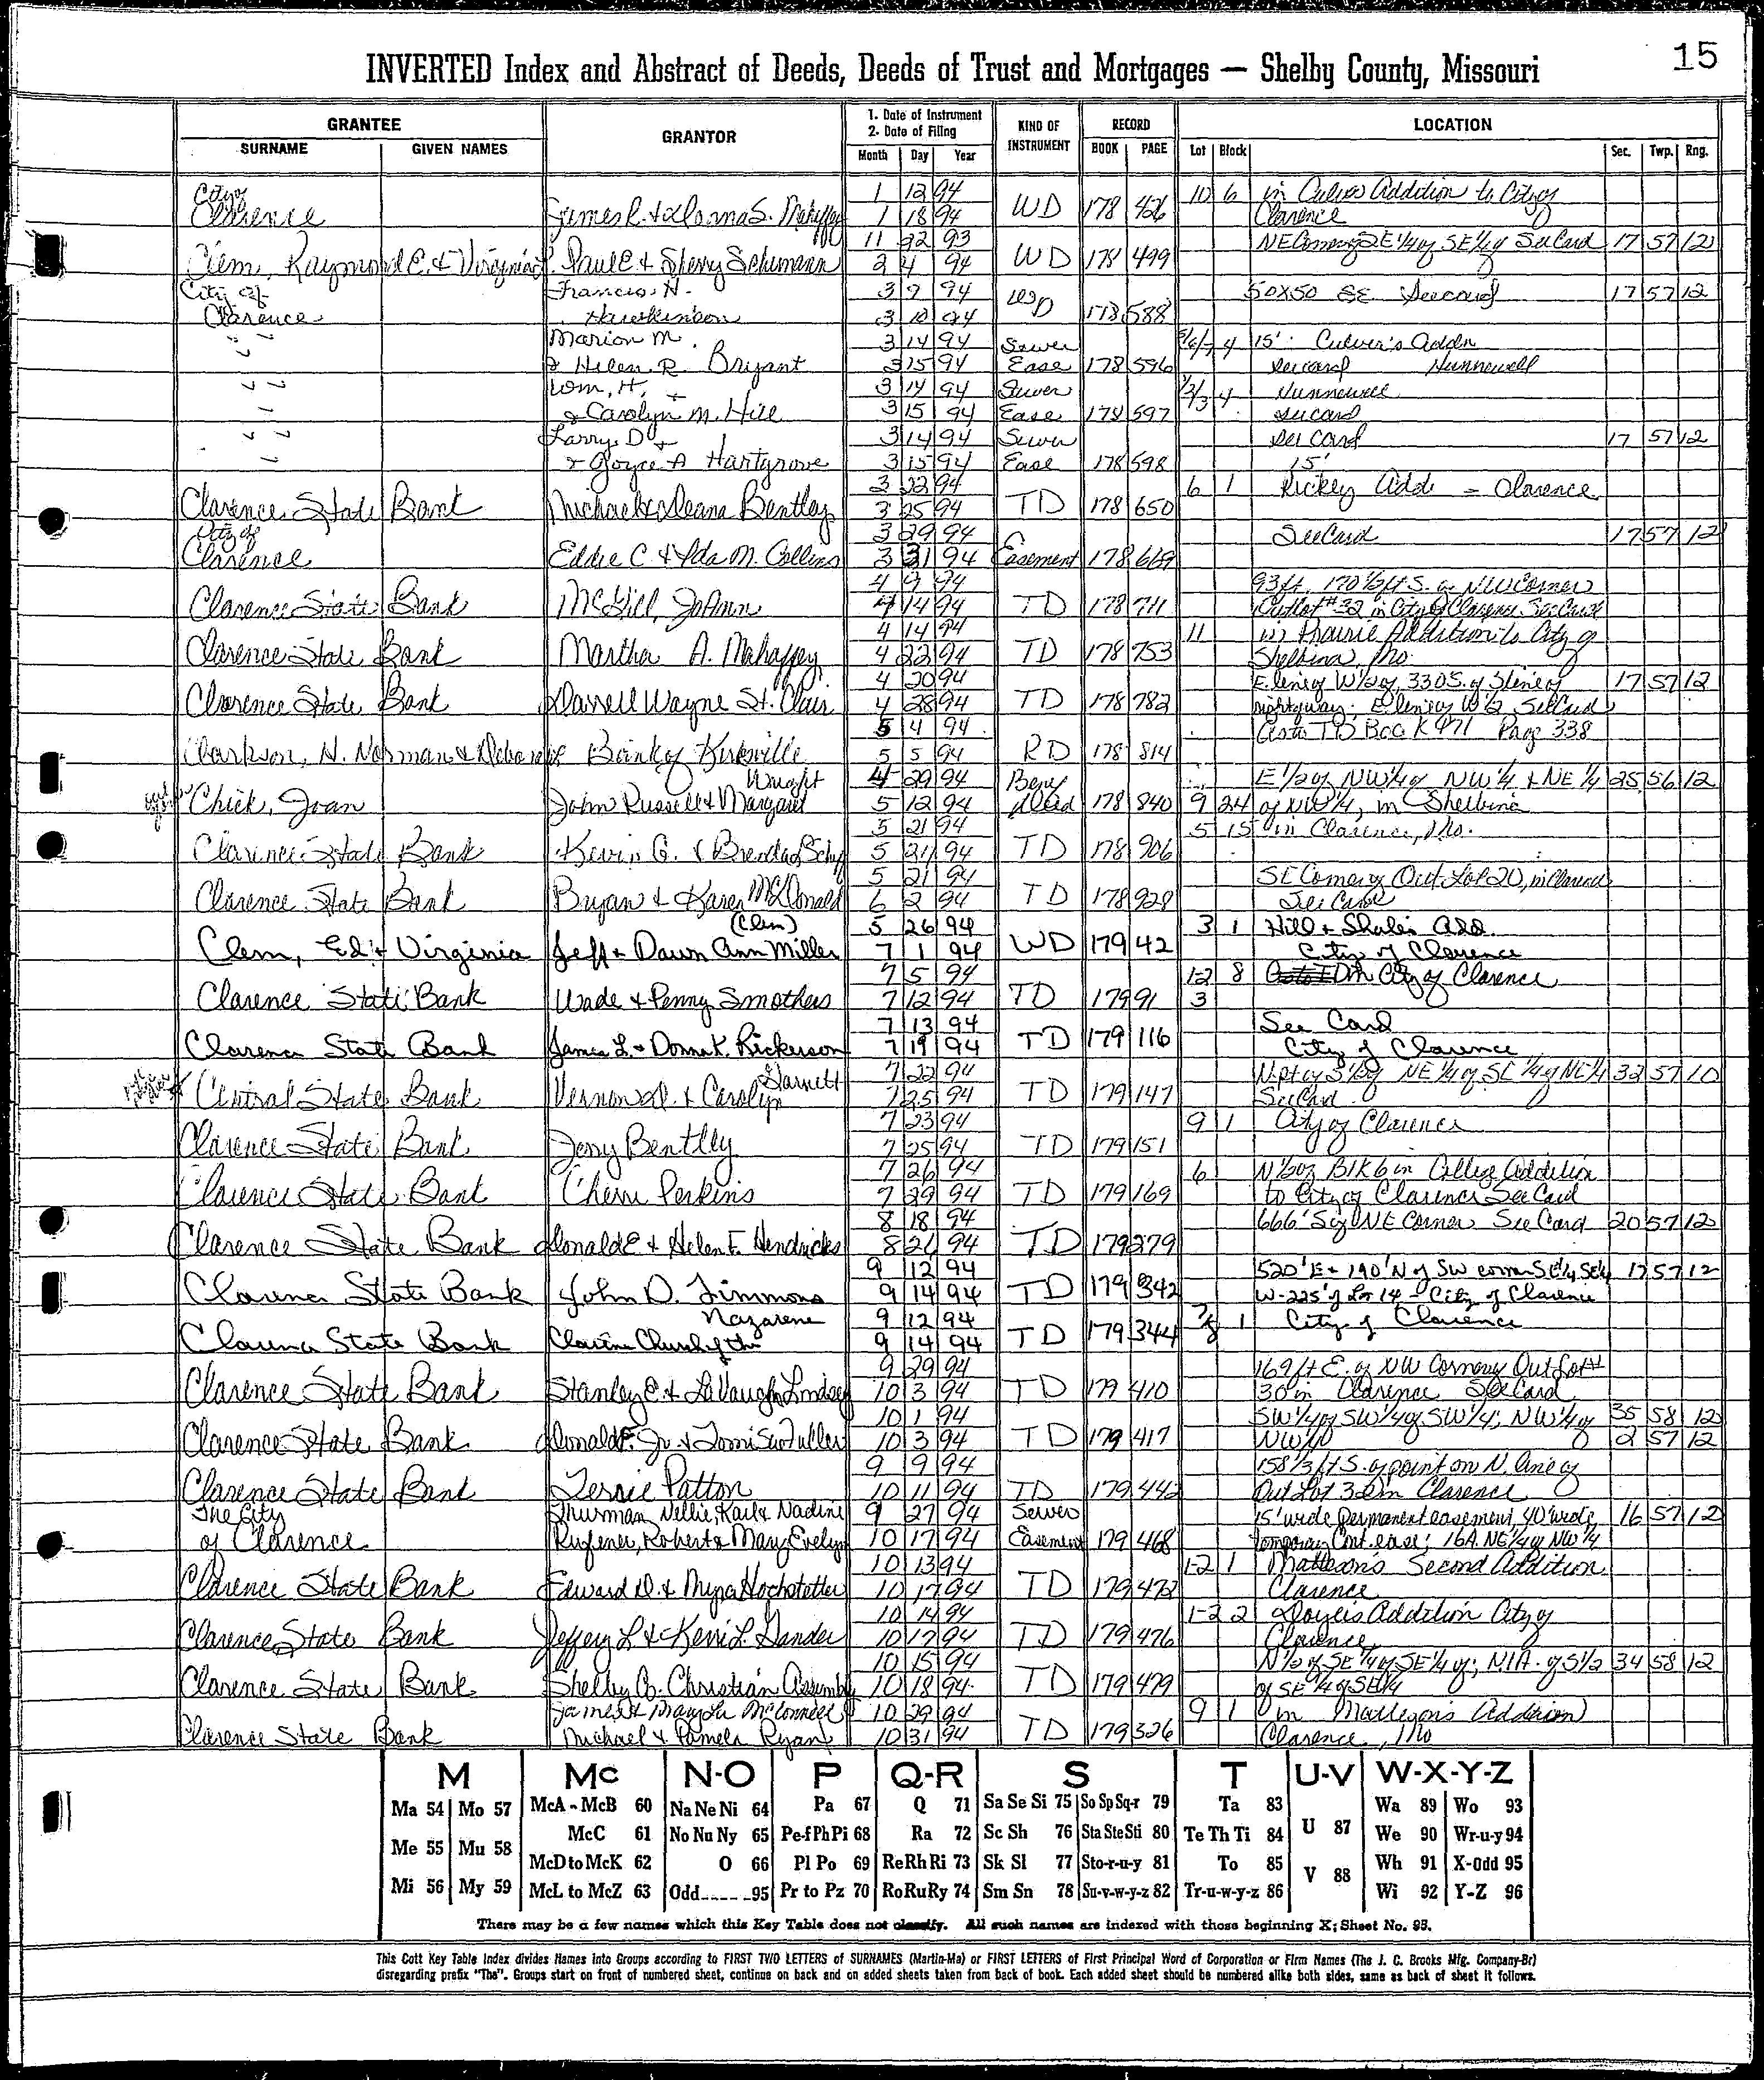 15
INVERTED Index and Abstract of Deeds, Deeds of Trust and Mortgages — Shelby County, Missouri
GRANTEE GRANTOR 1. Date of Instrument 2. Date of Filing KIND OF INSTRUMENT RECORD LOCATION
SURNAME GIVEN NAMES Month Day Year BOOK PAGE Lot Block Sec. Twp. Rng.
City of 1 12 94 10 6 in Culver Addition to City of
Clarence James R. & Donna S. Mahaffey 1 18 94 WD 178 426 Clarence
11 22 93 NE Corner of SE 1/4 of SE 1/4 See Card 17 57 12
Clem, Raymond E. & Virginia Paul E. & Sherry Schumann 2 4 94 WD 178 499
City of Francis H. 3 9 94 50x50 SE See card 17 57 12
Clarence Hawkinson 3 10 94 WD 178 588
" " Marion M. 3 14 94 Sewer 5/6/7 4 15' Culver's Addn
& Helen R. Bryant 3 15 94 Ease 178 596 See card Hunnewell
" " Wm. H. 3 14 94 Sewer 1/2/3 4 Hunnewell
& Carolyn M. Hill 3 15 94 Ease 178 597 See card
" " Larry D. 3 14 94 Sewer See Card 17 57 12
& Joyce A Hartgrove 3 15 94 Ease 178 598 15'
3 22 94 6 1 Rickey Add - Clarence
Clarence State Bank Michael & Deana Bentley 3 25 94 TD 178 650
City of 3 29 94 See Card 17 57 12
Clarence Eddie C. & Ida M. Collins 3 31 94 Easement 178 669
4 9 94 93 ft, 170 1/2 ft S. of NW Corner
Clarence State Bank McGill, JoAnn 4 14 94 TD 178 711 Outlot #32 in City of Clarence See Card
4 14 94 11 in Prairie Addition to City of
Clarence State Bank Martha A. Mahaffey 4 22 94 TD 178 753 Shelbina, Mo.
4 20 94 E. line of W 1/2 of, 330 S. of S line of 17 57 12
Clarence State Bank Darrell Wayne St. Clair 4 28 94 TD 178 782 rightofway; E line of W 1/2 See Card
5 4 94 As to TD Book 471 Page 338
Clarkson, H. Norman & Deborah Bank of Kirksville 5 5 94 RD 178 814
Wright 4 29 94 Beny E 1/2 of NW 1/4 of NW 1/4 & NE 1/4 25 56 12
Chick, Joan John Russell & Margaret 5 12 94 Deed 178 840 9 24 of NW 1/4, in Shelbina
5 21 94 5 15 in Clarence, Mo.
Clarence State Bank Kevin G. & Brenda 5 31 94 TD 178 906
5 21 94 SE Corner of Out Lot 20, in Clarence
Clarence State Bank Bryan & Karen McDonald 6 2 94 TD 178 928 See Card
(Clem) 5 26 94 3 1 Hill & Shale's Add.
Clem, Ed & Virginia Jeff & Dawn Ann Miller 7 1 94 WD 179 42 City of Clarence
7 5 94 1-2 8 In City of Clarence
Clarence State Bank Wade & Penny Smothers 7 12 94 TD 179 91 3
7 13 94 See Card
Clarence State Bank James L. & Donna K. Rickerson 7 19 94 TD 179 116 City of Clarence
Garnett 7 22 94 N pt of S 1/2 of NE 1/4 of SE 1/4 of NE 1/4 32 57 10
Central State Bank Vernon D. & Carolyn 7 25 94 TD 179 147 See Card
7 23 94 9 1 City of Clarence
Clarence State Bank Jerry Bentley 7 25 94 TD 179 151
7 26 94 6 N 1/2 of Blk 6 in College Addition
Clarence State Bank Cherie Perkins 7 29 94 TD 179 169 to City of Clarence See Card
8 18 94 666' S of NE Corner See Card 20 57 12
Clarence State Bank Donald E & Helen F. Hendricks 8 21 94 TD 179 279
9 12 94 520' E & 190' N of SW corner SE 1/4 SE 1/4 17 57 12
Clarence State Bank John D. Timmons 9 14 94 TD 179 342 W-225' of Lot 14 - City of Clarence
Nazarene 9 12 94 7/8 1 City of Clarence
Clarence State Bank Clarence Church of the 9 14 94 TD 179 344
9 29 94 169 ft E. of NW Corner of Out Lot #
Clarence State Bank Stanley E. & LaVaughn Lindsey 10 3 94 TD 179 410 30 in Clarence See Card
10 1 94 SW 1/4 of SW 1/4 of SW 1/4; NW 1/4 of 35 58 12
Clarence State Bank Donald F. Jr. & Tomi Sue Fuller 10 3 94 TD 179 417 NW 1/4 2 57 12
9 9 94 158 1/3 ft S. of point on N. line of
Clarence State Bank Terrie Patton 10 11 94 TD 179 442 Out Lot 32 in Clarence
The City Thurman, Nellie, Karl & Nadine 9 27 94 Sewer 15' wide permanent easement, 40' wide 16 57 12
of Clarence Rufener, Robert & Mary Evelyn 10 17 94 Easement 179 468 temporary Const. ease; 16A. NE 1/4 of NW 1/4
10 13 94 1-2 1 Matteson's Second Addition
Clarence State Bank Edward D. & Myra Hochstetler 10 17 94 TD 179 472 Clarence
10 14 94 1-2 2 Doyle's Addition City of
Clarence State Bank Jeffery L & Kerri L. Gander 10 17 94 TD 179 476 Clarence
10 15 94 N 1/2 of SE 1/4 of SE 1/4 of; N1A. of S 1/2 34 58 12
Clarence State Bank Shelby Co. Christian Assembly 10 18 94 TD 179 479 of SE 1/4 of SE 1/4
James & Mary Lu McConnell 10 29 94 9 1 in Matteson's Addition
Clarence State Bank Michael & Pamela Ryan 10 31 94 TD 179 526 Clarence, Mo
M Mc N-O P Q-R S T U-V W-X-Y-Z
Ma 54 Mo 57 McA - McB 60 Na Ne Ni 64 Pa 67 Q 71 Sa Se Si 75 So Sp Sq-r 79 Ta 83 U 87 Wa 89 Wo 93
Me 55 Mu 58 McC 61 No Nu Ny 65 Pe-f Ph Pi 68 Ra 72 Sc Sh 76 Sta Ste Sti 80 Te Th Ti 84 We 90 Wr-u-y 94
McD to McK 62 O 66 Pl Po 69 Re Rh Ri 73 Sk Sl 77 Sto-r-u-y 81 To 85 V 88 Wh 91 X-Odd 95
Mi 56 My 59 McL to McZ 63 Odd 95 Pr to Pz 70 Ro Ru Ry 74 Sm Sn 78 Su-v-w-y-z 82 Tr-u-w-y-z 86 Wi 92 Y-Z 96
There may be a few names which this Key Table does not classify. All such names are indexed with those beginning X; Sheet No. 95.
This Cott Key Table Index divides Names into Groups according to FIRST TWO LETTERS of SURNAMES (Martin-Ma) or FIRST LETTERS of First Principal Word of Corporation or Firm Names (The J. C. Brooks Mfg. Company-Br)
disregarding prefix "The". Groups start on front of numbered sheet, continue on back and on added sheets taken from back of book. Each added sheet should be numbered alike both sides, same as back of sheet it follows.